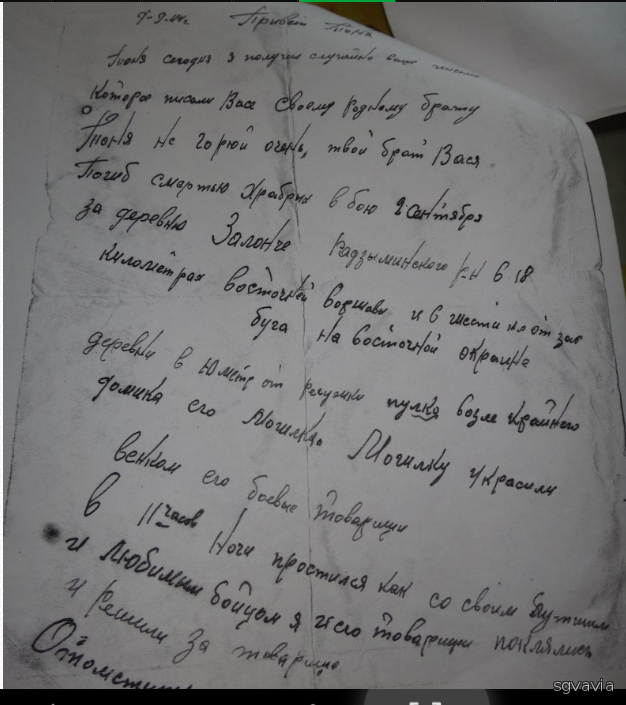 7-9-44г. Привет Тоня
Тоня сегодня я получил случайно ваше письмо
которое писали Васе своему родному брату
Тоня не горюй очень, твой брат Вася
Погиб смертью храбрых в бою 2 сентября
за деревню Залонче Радзыминского р-н в 18
километрах восточней Варшави и в шести км от зап
буга на восточной окраине
деревни в 10 метр от речушки пулка возле крайнего
домика его могилка. Могилку украсили
венком его боевые товарищи
В 11 часов ночи простился как со своим лутшим
и любимым бойцом я и его товарищи поклялись
и решили за товарища
Отомстить
sgvavia